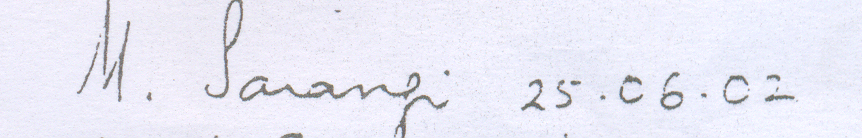 M. Sarangi 25.06.02